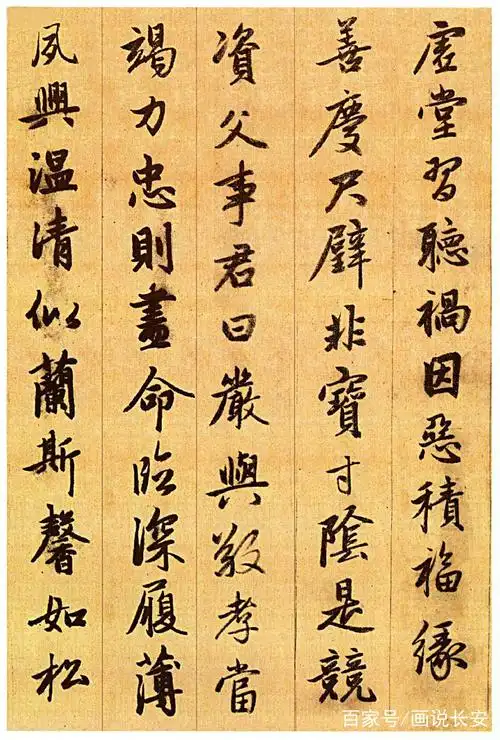 虚堂習聽禍因惡積福緣
善慶尺璧非寶寸陰是競
資父事君曰嚴與敬孝當
竭力忠則盡命臨深履薄
夙興温清似蘭斯馨如松
百家号/画说长安